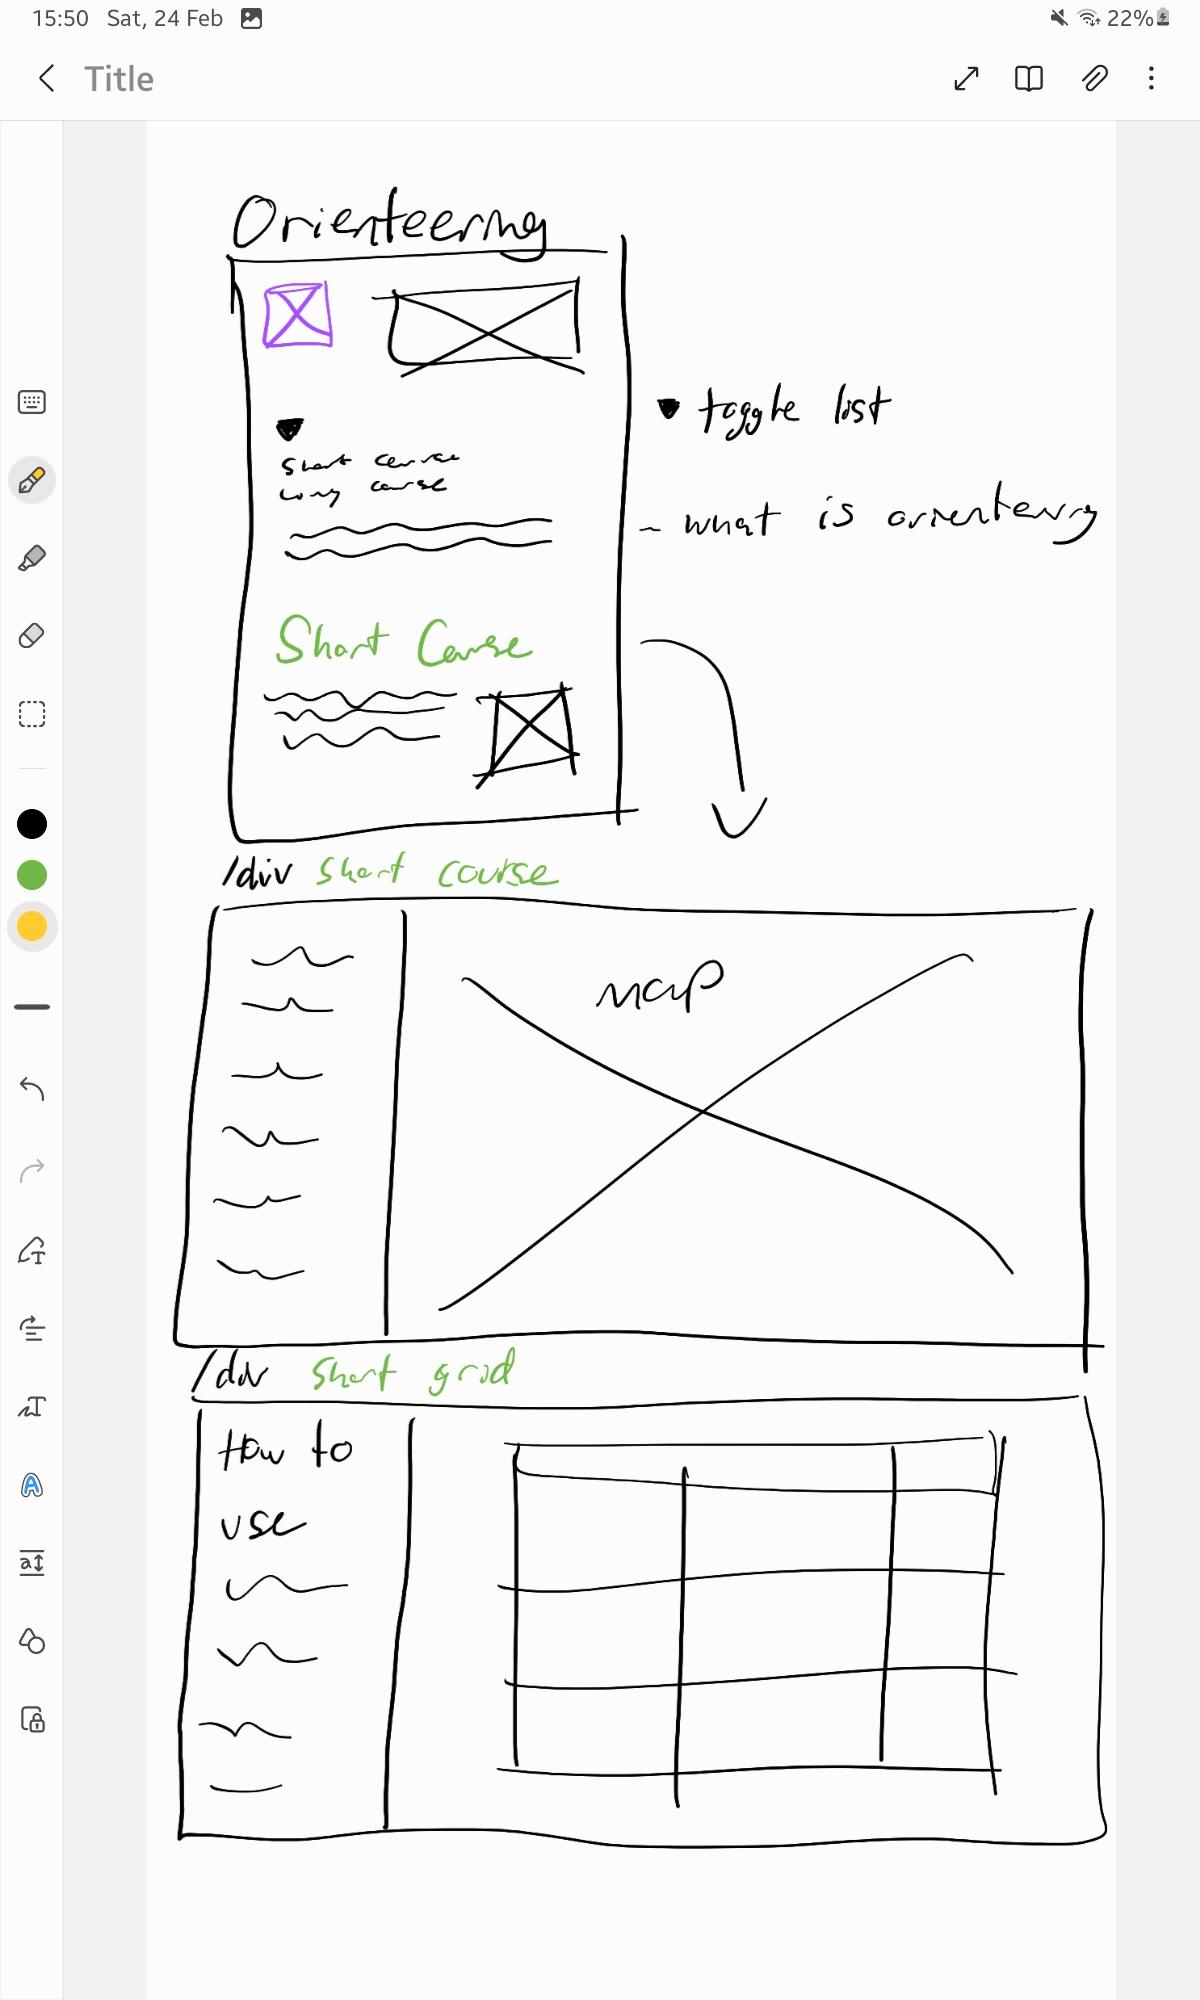 15:50 Sat, 24 Feb 22%
Title
Orienteering
toggle list
Short course
Long course
- what is orienteering
Short Course
/div short course
map
/div short grid
How to
use